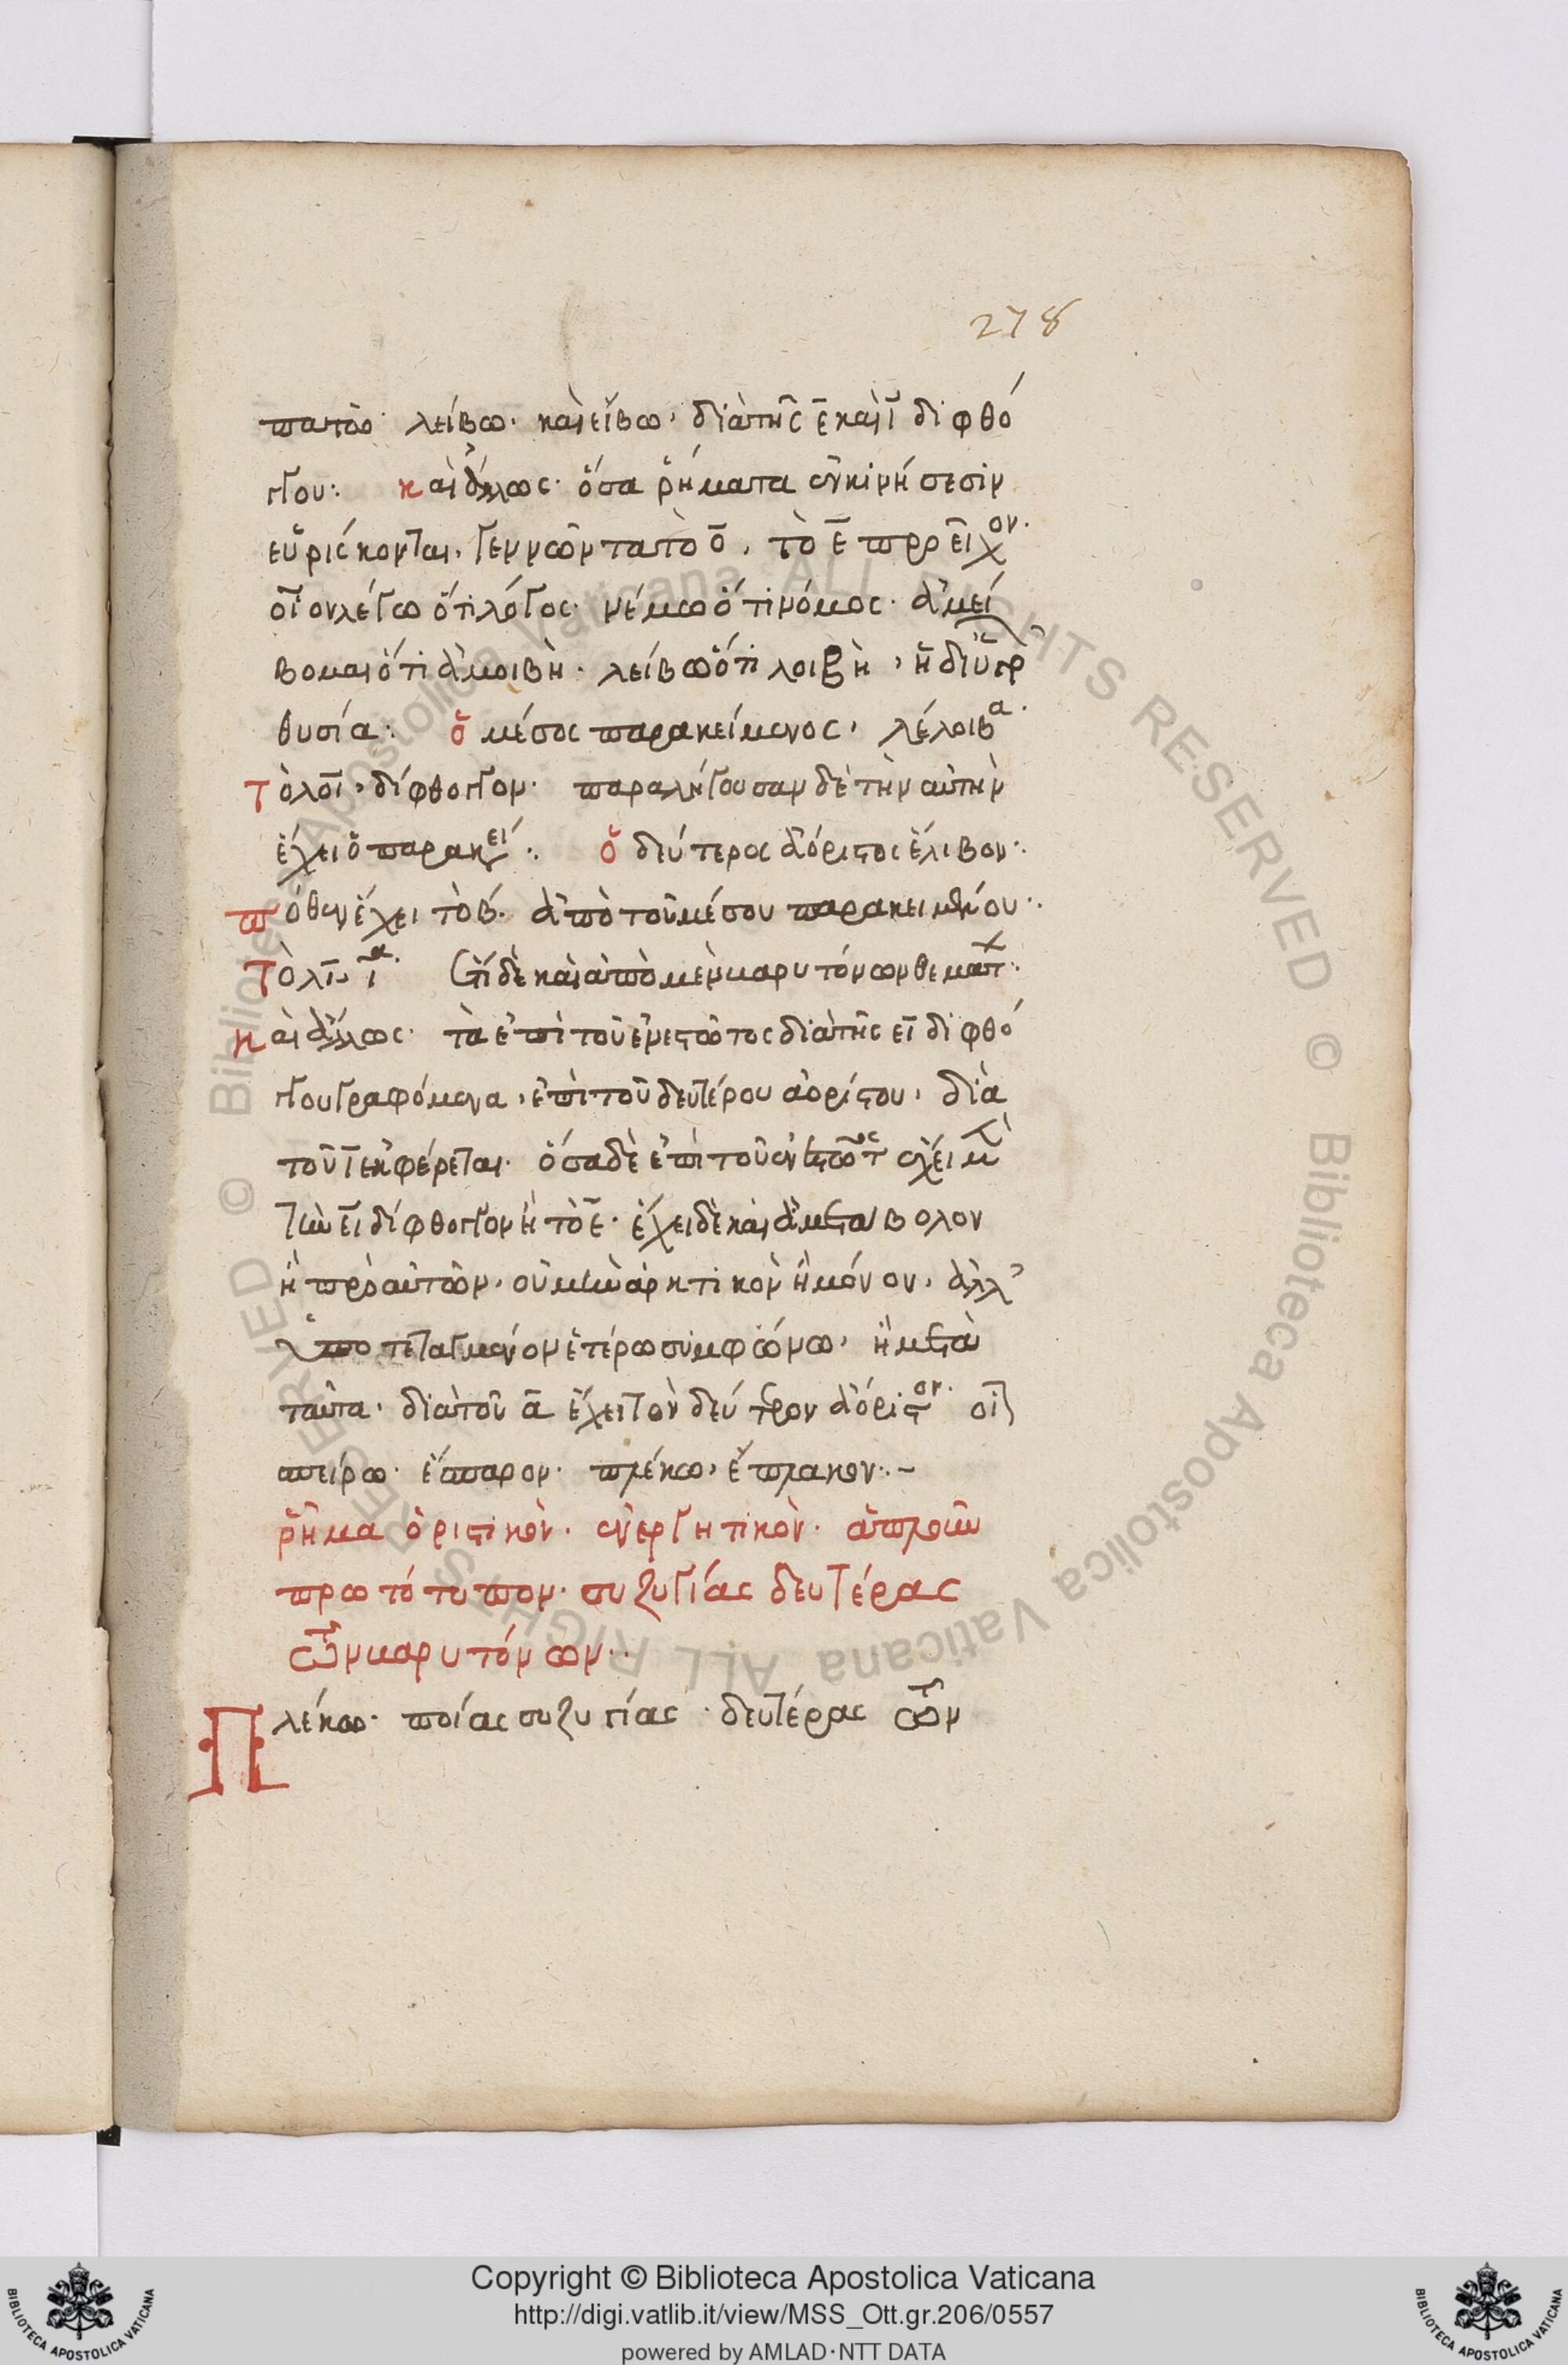 278
πατῶ· λείβω· καὶ εἴβω, διὰ τῆς ε̄ καὶ ῑ διφθό
γγου: καὶ ἄλλως· ὅσα ῥήματα ἐν κινήσεσιν
εὑρίσκονται, γεννῶντα τὸ ο̄, τὸ ε̄ προεῖχον·
οἷον λέγω ὅτι λόγος· νέμω ὅτι νόμος· ἀμεί
βομαι ὅτι ἀμοιβὴ· λείβω ὅτι λοιβὴ, ἡ δι'
θυσία: ὁ μέσος παρακείμενος, λέλοιβα·
τὸ λοῑ, δίφθογγον· παραλήγουσαν δὲ τὴν αὐτὴν
ἔχει ὁ παρακεί:. ὁ δεύτερος ἀόριστος ἔλιβον:.
πόθεν ἔχει τὸ β· ἀπὸ τοῦ μέσου παρακειμένου:.
τὸ λῑ ῑα· ἔτι δὲ καὶ ἀπὸ μὲν βαρυτόνων θεματ:
καὶ ἄλλως· τὰ ἐπὶ τοῦ ἐνεστῶτος διὰ τῆς ει διφθό
γγου γραφόμενα, ἐπὶ τοῦ δευτέρου ἀορίστου, διὰ
τοῦ ῑ ἐκφέρεται· ὅσα δὲ ἐπὶ τοῦ ἐνεστῶτος ἔχει
τὴν ει δίφθογγον ἢ τὸ ε̄· ἔχει δὲ καὶ ἀμετάβολον
ἢ πρὸ αὐτῶν, οὐ μὴν ἀρκτικὸν ἢ μόνον, ἀλλ'
ὑποτεταγμένον ἑτέρω συμφώνω, ἢ μετὰ
ταῦτα· διὰ τοῦ ᾱ ἔχει τὸν δεύτερον ἀόριστον· οἷον
σπείρω· ἔσπαρον· πλέκω, ἔπλακον:.~
ῥῆμα ὁριστικὸν· ἐνεργητικὸν· ἁπλοῦν
πρωτότυπον· συζυγίας δευτέρας
τῶν βαρυτόνων:.
Πλέκω· ποίας συζυγίας· δευτέρας τῶν
Copyright © Biblioteca Apostolica Vaticana
http://digi.vatlib.it/view/MSS_Ott.gr.206/0557
powered by AMLAD·NTT DATA
BIBLIOTECA APOSTOLICA VATICANA
BIBLIOTECA APOSTOLICA VATICANA
© Biblioteca Apostolica Vaticana ALL RIGHTS RESERVED © Biblioteca Apostolica Vaticana ALL RIGHTS RESERVED